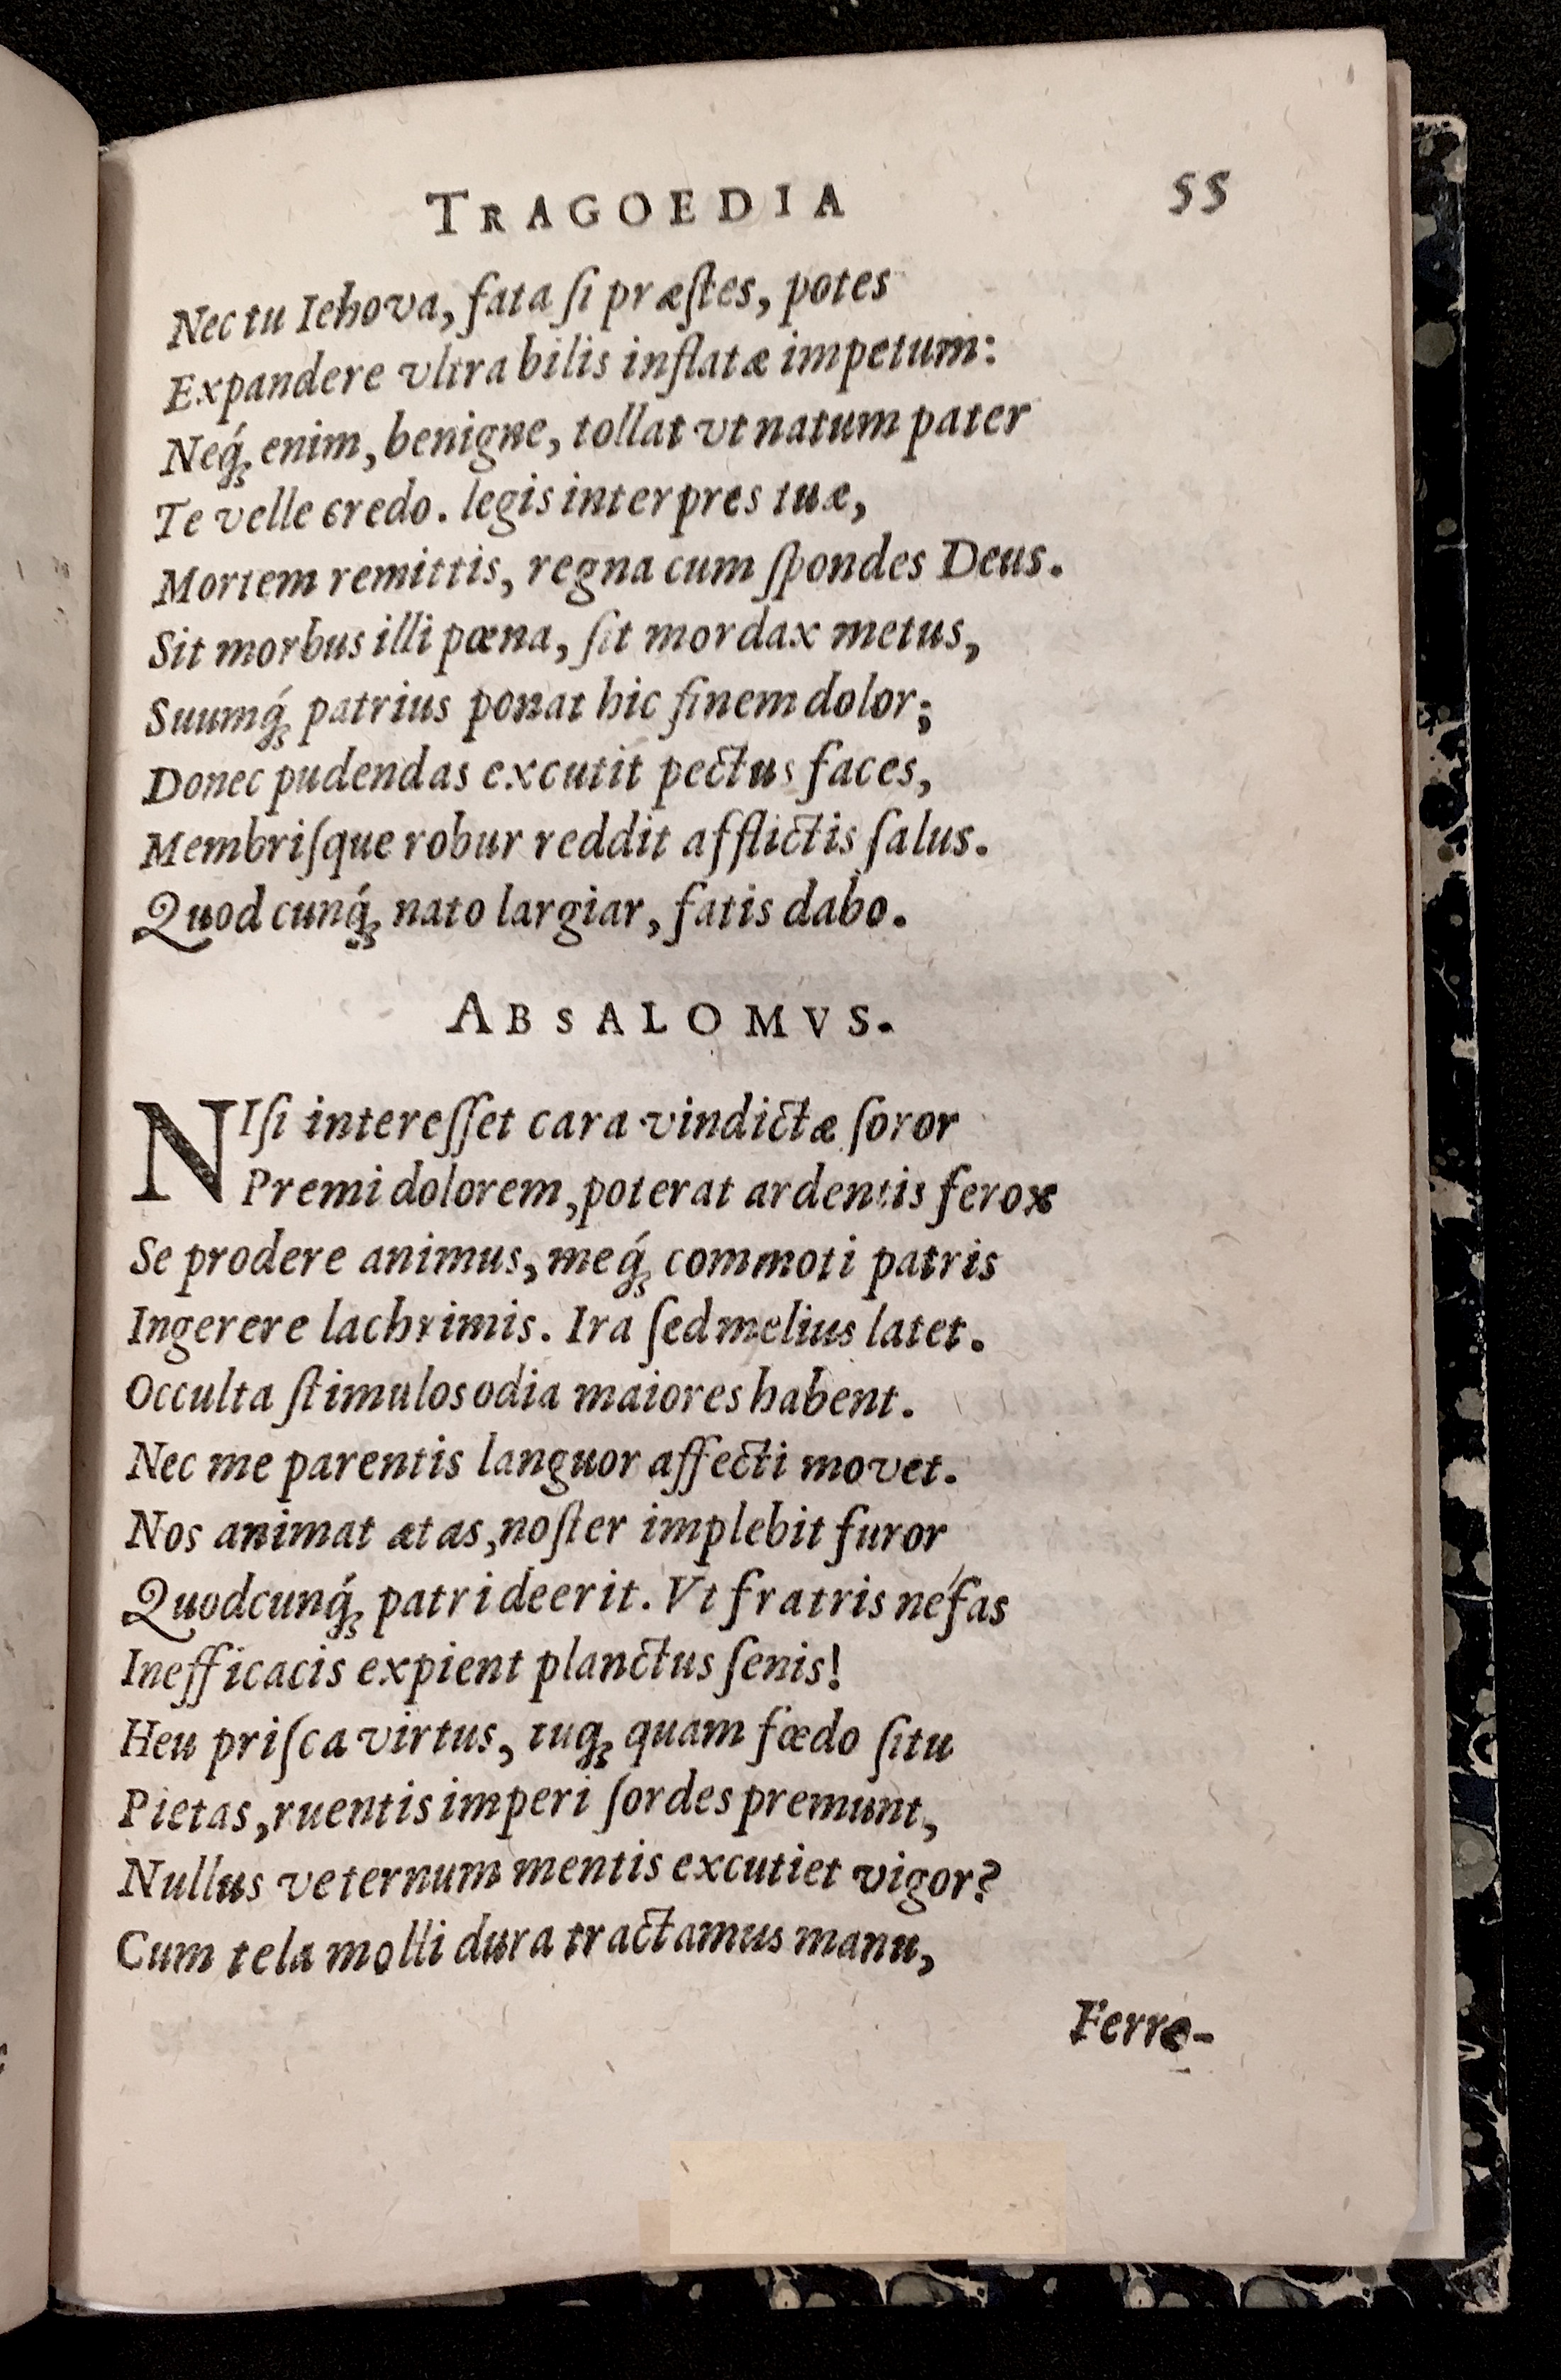 TRAGOEDIA 55
Nec tu Iehova, fata ſi præſtes, potes
Expandere vltra bilis inflatæ impetum:
Neq́ꝫ enim, benigne, tollat vt natum pater
Te velle credo. legis interpres tuæ,
Mortem remittis, regna cum ſpondes Deus.
Sit morbus illi pœna, ſit mordax metus,
Suumq́ꝫ patrius ponat hic finem dolor;
Donec pudendas excutit pectus faces,
Membriſque robur reddit afflictis ſalus.
Quodcunq́ꝫ nato largiar, fatis dabo.
ABSALOMVS.
NIſi intereſſet cara vindictæ ſoror
Premi dolorem, poterat ardentis ferox
Se prodere animus, meq́ꝫ commoti patris
Ingerere lachrimis. Ira ſed melius latet.
Occulta ſtimulos odia maiores habent.
Nec me parentis languor affecti movet.
Nos animat ætas, noſter implebit furor
Quodcunq́ꝫ patri deerit. Vt fratris néfas
Inefficacis expient planctus ſenis!
Heu priſca virtus, tuqꝫ quam fœdo ſitu
Pietas, ruentis imperi ſordes premunt,
Nullus veternum mentis excutiet vigor?
Cum tela molli dura tractamus manu,
Ferre-